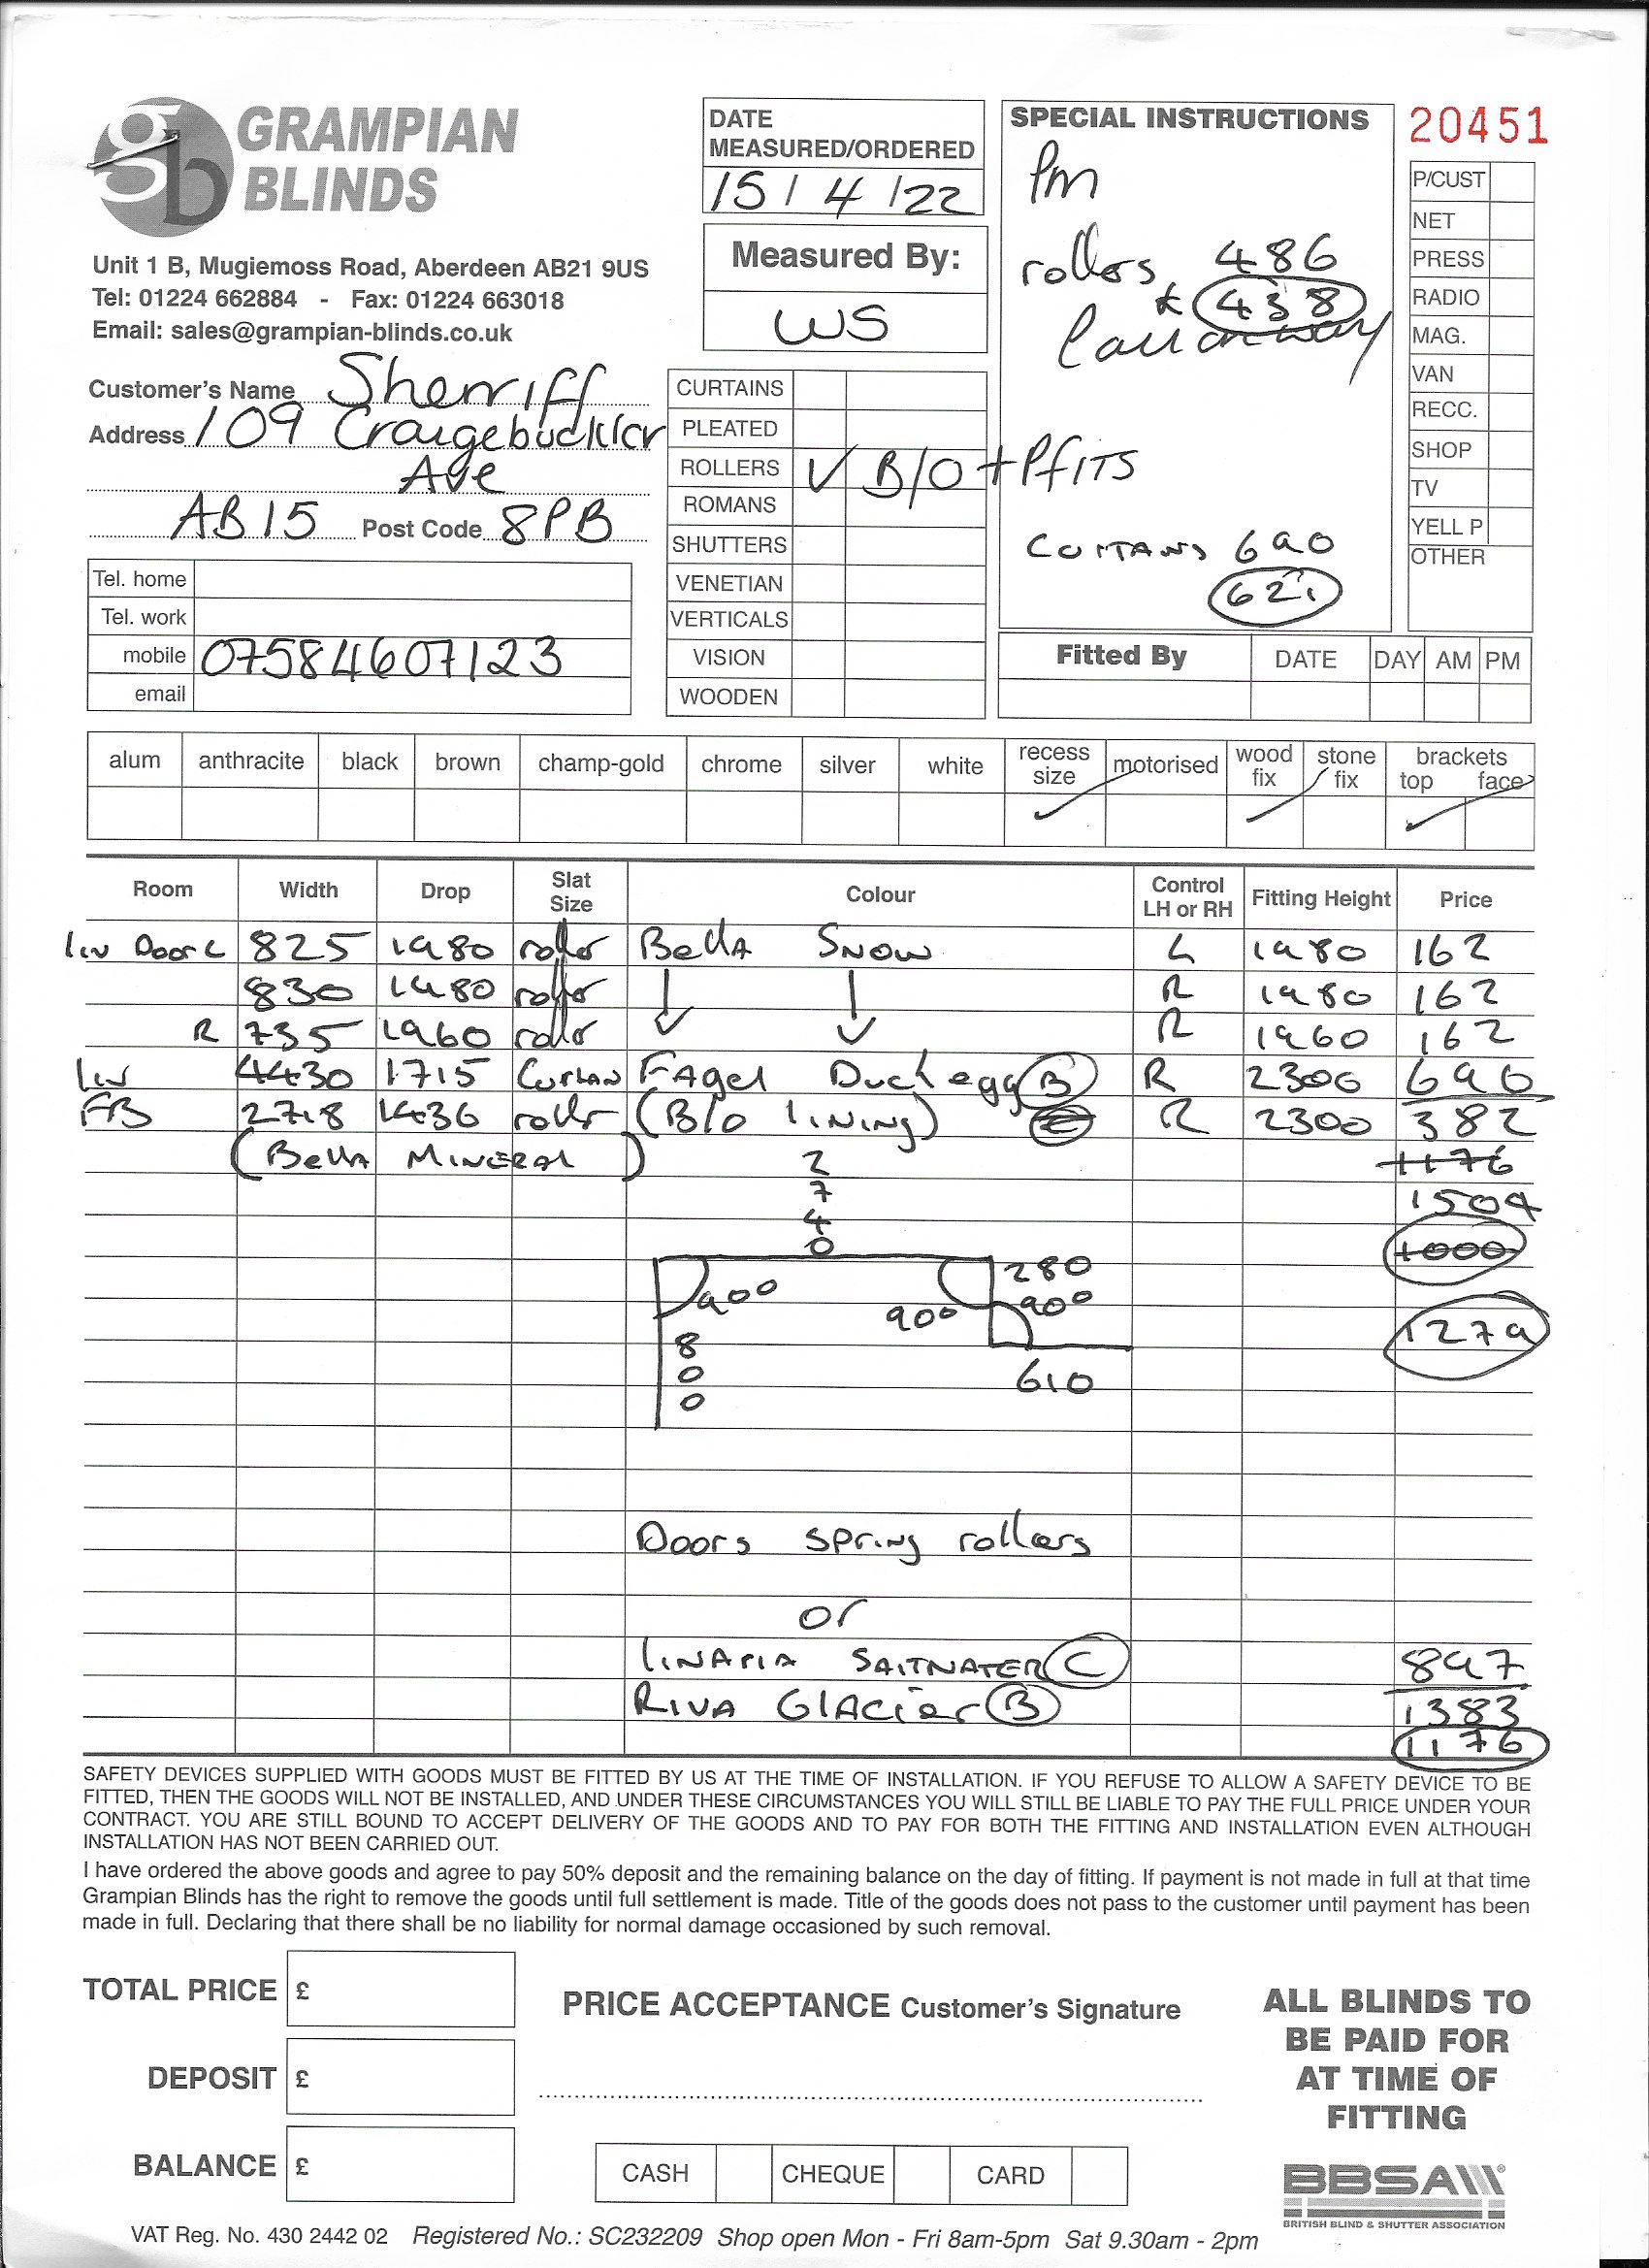 GRAMPIAN
BLINDS
Unit 1 B, Mugiemoss Road, Aberdeen AB21 9US
Tel: 01224 662884 - Fax: 01224 663018
Email: sales@grampian-blinds.co.uk
DATE
MEASURED/ORDERED
15 / 4 / 22
Measured By:
WS
SPECIAL INSTRUCTIONS
Pm
rollers 486
438
Call on way
B/O + Pfits
690
621
20451
P/CUST
NET
PRESS
RADIO
MAG.
VAN
RECC.
SHOP
TV
YELL P
OTHER
Customer's Name Sherriff
Address 109 Craigiebuckler
Ave
AB15 Post Code 8PB
Tel. home
Tel. work
mobile 07584607123
email
CURTAINS
PLEATED
ROLLERS ✓
ROMANS
SHUTTERS
VENETIAN
VERTICALS
VISION
WOODEN
Fitted By DATE DAY AM PM
alum anthracite black brown champ-gold chrome silver white recess size ✓ motorised wood fix ✓ stone fix brackets top ✓ face
Room Width Drop Slat Size Colour Control LH or RH Fitting Height Price
Liv Door L 825 1980 roller Bella Snow L 1980 162
830 1980 roller ↓ ↓ R 1980 162
R 735 1960 roller R 1960 162
Liv 4430 1715 Fagel Duck egg B R 2300 690
FB 2718 1436 roller (B/O lining) R 2300 382
(Bella Mineral) 1176
2740
1504
1000
280
900 900 900
1279
800
610
Doors spring rollers
or
C 897
Riva Glacier B 1383
1176
SAFETY DEVICES SUPPLIED WITH GOODS MUST BE FITTED BY US AT THE TIME OF INSTALLATION. IF YOU REFUSE TO ALLOW A SAFETY DEVICE TO BE
FITTED, THEN THE GOODS WILL NOT BE INSTALLED, AND UNDER THESE CIRCUMSTANCES YOU WILL STILL BE LIABLE TO PAY THE FULL PRICE UNDER YOUR
CONTRACT. YOU ARE STILL BOUND TO ACCEPT DELIVERY OF THE GOODS AND TO PAY FOR BOTH THE FITTING AND INSTALLATION EVEN ALTHOUGH
INSTALLATION HAS NOT BEEN CARRIED OUT.
I have ordered the above goods and agree to pay 50% deposit and the remaining balance on the day of fitting. If payment is not made in full at that time
Grampian Blinds has the right to remove the goods until full settlement is made. Title of the goods does not pass to the customer until payment has been
made in full. Declaring that there shall be no liability for normal damage occasioned by such removal.
TOTAL PRICE £
PRICE ACCEPTANCE Customer's Signature
DEPOSIT £
BALANCE £
CASH CHEQUE CARD
ALL BLINDS TO
BE PAID FOR
AT TIME OF
FITTING
BBSA
BRITISH BLIND & SHUTTER ASSOCIATION
VAT Reg. No. 430 2442 02 Registered No.: SC232209 Shop open Mon - Fri 8am-5pm Sat 9.30am - 2pm